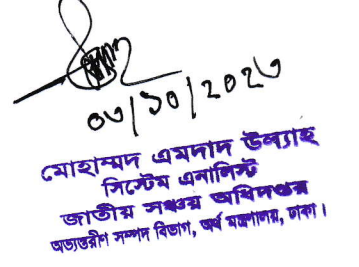 ০৩/১০/২০২৩
মোহাম্মদ এমদাদ উল্যাহ
সিস্টেম এনালিস্ট
জাতীয় সঞ্চয় অধিদপ্তর
অভ্যন্তরীণ সম্পদ বিভাগ, অর্থ মন্ত্রণালয়, ঢাকা।